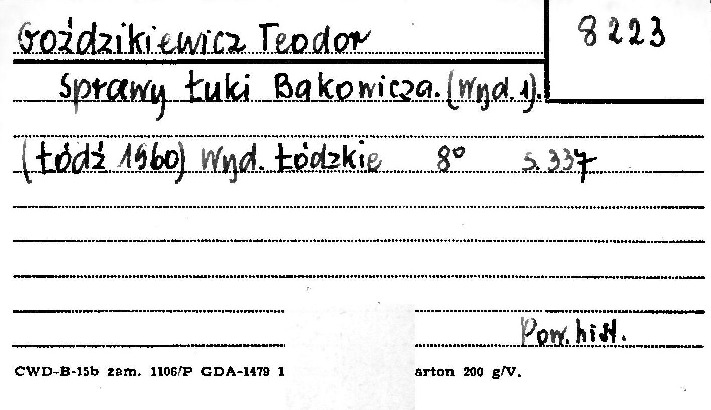 Goździkiewicz Teodor 8223
Sprawy Łuki Bakowicza. (Wyd. 1).
(Łódź 1960) Wyd. Łódzkie 8° s. 337
Pow. hist.
CWD-B-15b zam. 1106/P GDA-1479 1 arton 200 g/V.